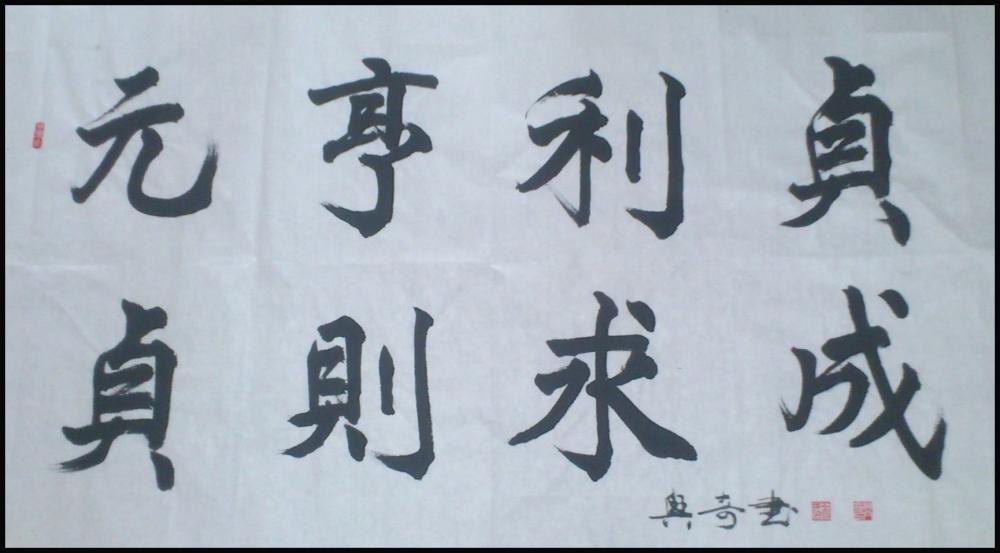 元亨利貞
貞則求成
興奇书